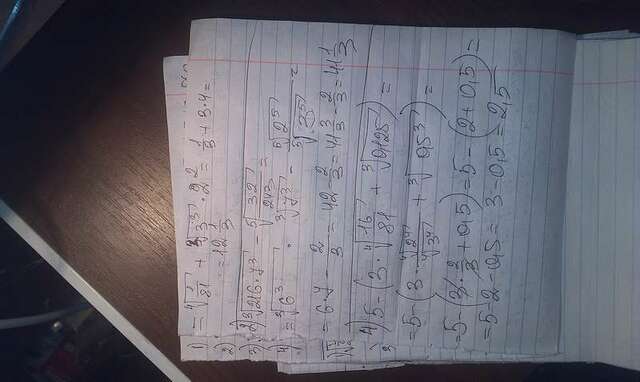 1) = ⁴√(1/81) + ³√(3³) · 2² = 1/3 + 3·4 =
2) = 12 1/3
3) ³√(216·7³) - ⁵√(32/243) =
4) = ³√(6³) · ³√(7³) - ⁵√(2⁵)/⁵√(3⁵) =
= 6·7 - 2/3 = 42 - 2/3 = 41 3/3 - 2/3 = 41 1/3
4) 5 - (3 · ⁴√(16/81) + ³√(0,125)) =
= 5 - (3 · ⁴√(2⁴)/⁴√(3⁴) + ³√(0,5³)) =
= 5 - (3 · 2/3 + 0,5) = 5 - (2 + 0,5) =
= 5 - 2 - 0,5 = 3 - 0,5 = 2,5